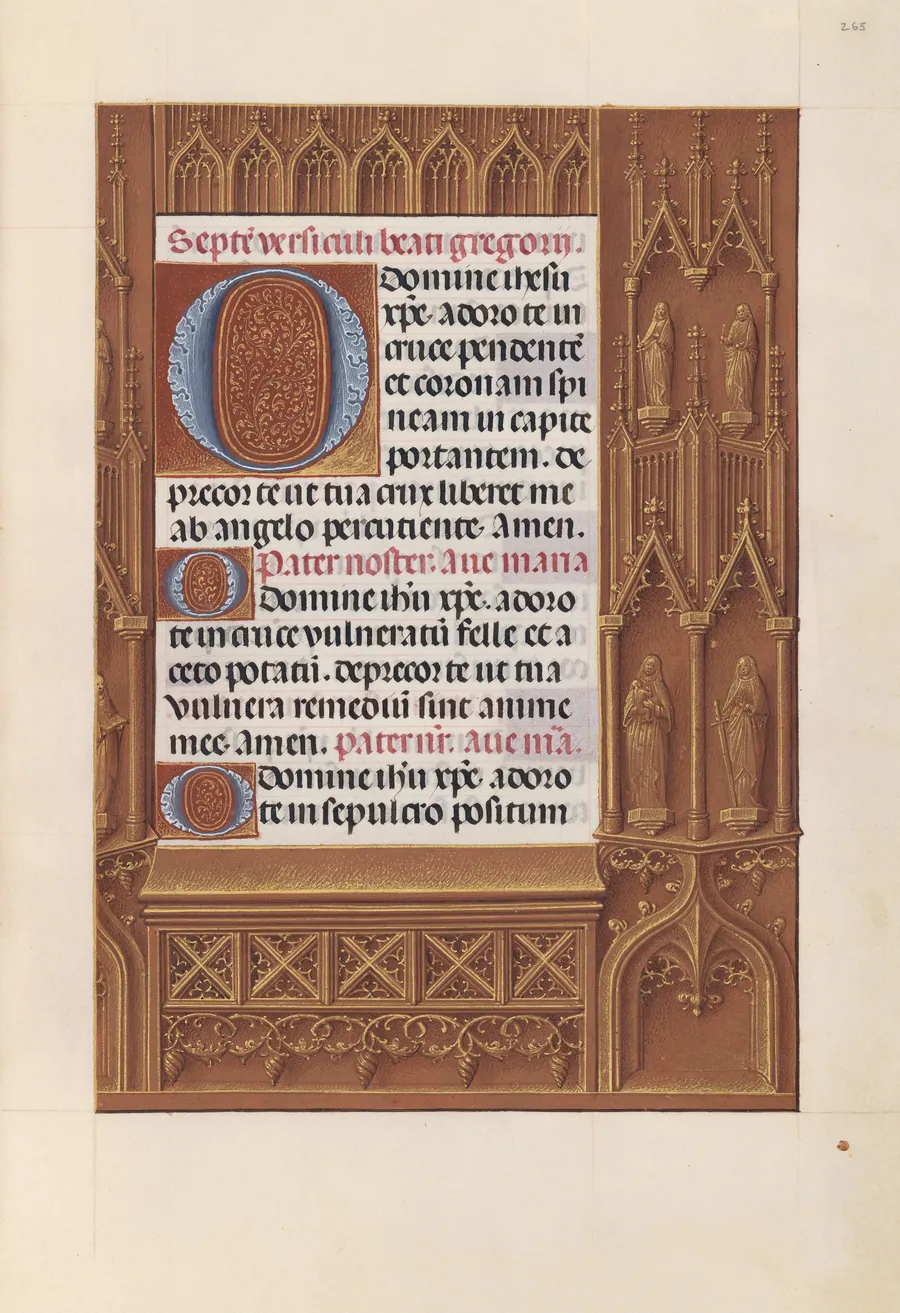 265
Septē versiculi beati gregorij.
O domine ihesu
xp̄e adoro te in
cruce pendentē
et coronam spi
neam in capite
portantem. de
precor te ut tua crux liberet me
ab angelo percutiente. Amen.
Pater noster. Aue maria
O domine ih̄u xp̄e. adoro
te in cruce vulneratū felle et a
ceto potatū. deprecor te ut tua
vulnera remediū sint anime
mee. Amen. pater nr̄. Aue mā.
O domine ih̄u xp̄e adoro
te in sepulcro positum